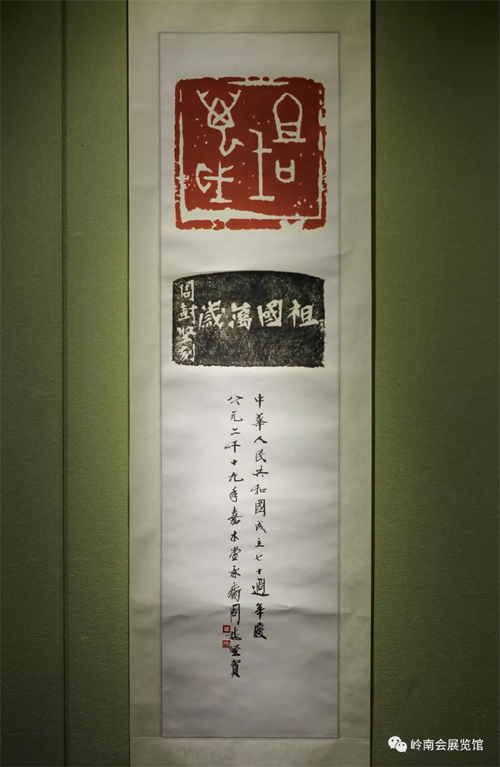 祖國萬歲
周封堅刻
中華人民共和國成立七十週年慶
公元二千十九年嘉木堂周封堅賀
岭南会展览馆